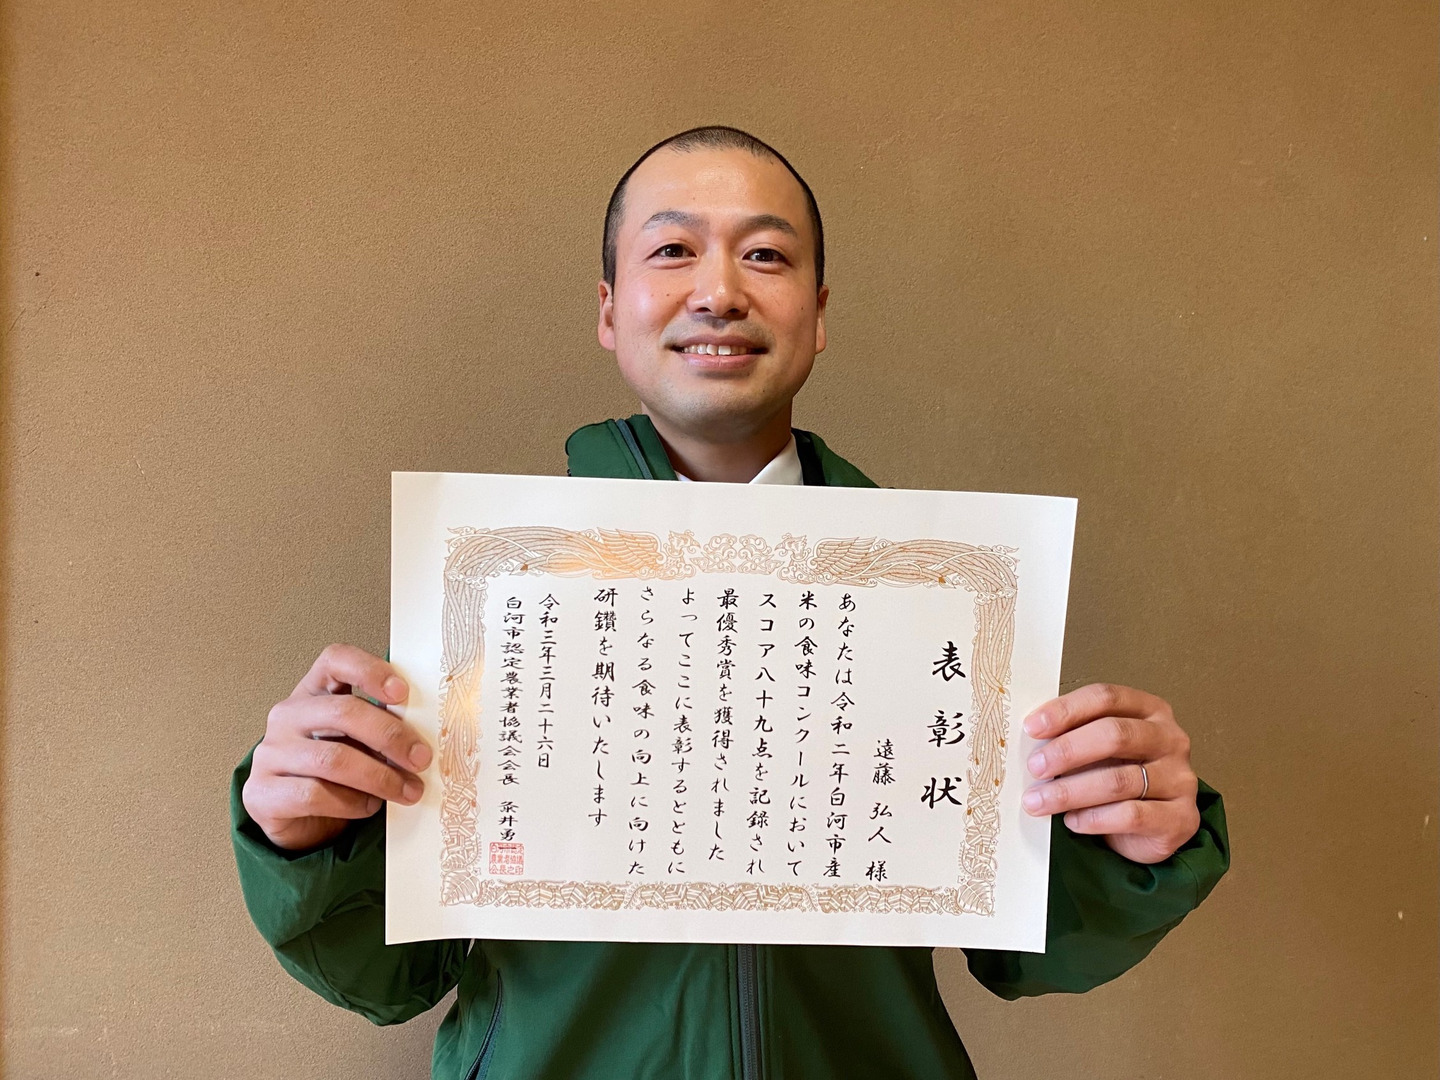 表彰状
遠藤 弘人 様
あなたは令和二年白河市産
米の食味コンクールにおいて
スコア八十九点を記録され
最優秀賞を獲得されました
よってここに表彰するとともに
さらなる食味の向上に向けた
研鑽を期待いたします
令和三年三月二十六日
白河市認定農業者協議会会長 井勇